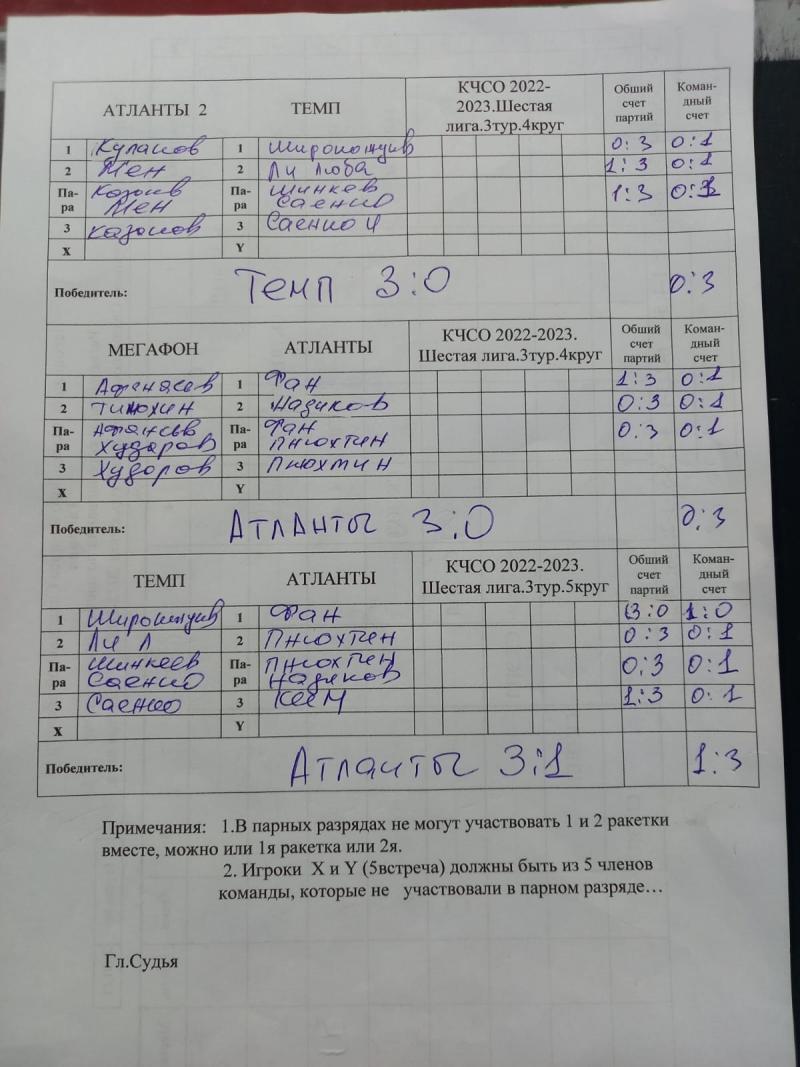 АТЛАНТЫ 2 ТЕМП КЧСО 2022-2023.Шестая лига.3тур.4круг Общий счет партий Коман-дный счет
1 Купаков 1 Широкожуив 0:3 0:1
2 Мен 2 Ли Люба 1:3 0:1
Па-ра Казоив Мен Па-ра Шинкев Саенко 1:3 0:1
3 Казаков 3 Саенко И
X Y
Победитель: Темп 3:0 0:3
МЕГАФОН АТЛАНТЫ КЧСО 2022-2023. Шестая лига.3тур.4круг Общий счет партий Коман-дный счет
1 Афенасев 1 Фан 1:3 0:1
2 Тимохин 2 Надиков 0:3 0:1
Па-ра Худоров Па-ра Фан Пнюхтин 0:3 0:1
3 Худоров 3 Пнюхтин
X Y
Победитель: Атланты 3:0 0:3
ТЕМП АТЛАНТЫ КЧСО 2022-2023. Шестая лига.3тур.5круг Общий счет партий Коман-дный счет
1 1 Фан 3:0 1:0
2 Ли Л 2 Пнюхтин 0:3 0:1
Па-ра Шинкеев Саенко Па-ра Пнюхтин Надиков 0:3 0:1
3 Саенко 3 Ким 1:3 0:1
X Y
Победитель: Атланты 3:1 1:3
Примечания: 1.В парных разрядах не могут участвовать 1 и 2 ракетки
вместе, можно или 1я ракетка или 2я.
2. Игроки X и Y (5встреча) должны быть из 5 членов
команды, которые не участвовали в парном разряде…
Гл.Судья